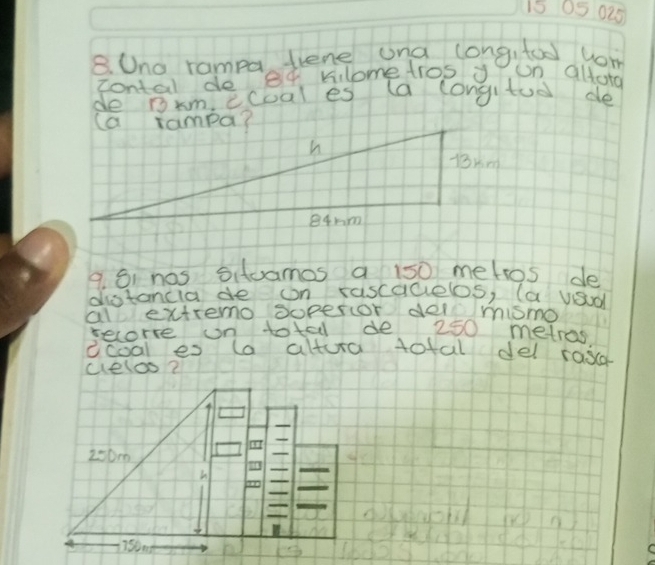 15 05 025
8. Una rampa tiene una longitud hori
zontal de 84 kilometros y un altura
de 13 km. ¿Cual es la longitud de
la rampa?
h
13km
84km
9. Si nos situamos a 150 metros de
distancia de un rascacielos, la visual
al extremo soperior del mismo
recorre un total de 250 metros.
¿coal es la altura total del rasca-
cielos?
250m
h
150m